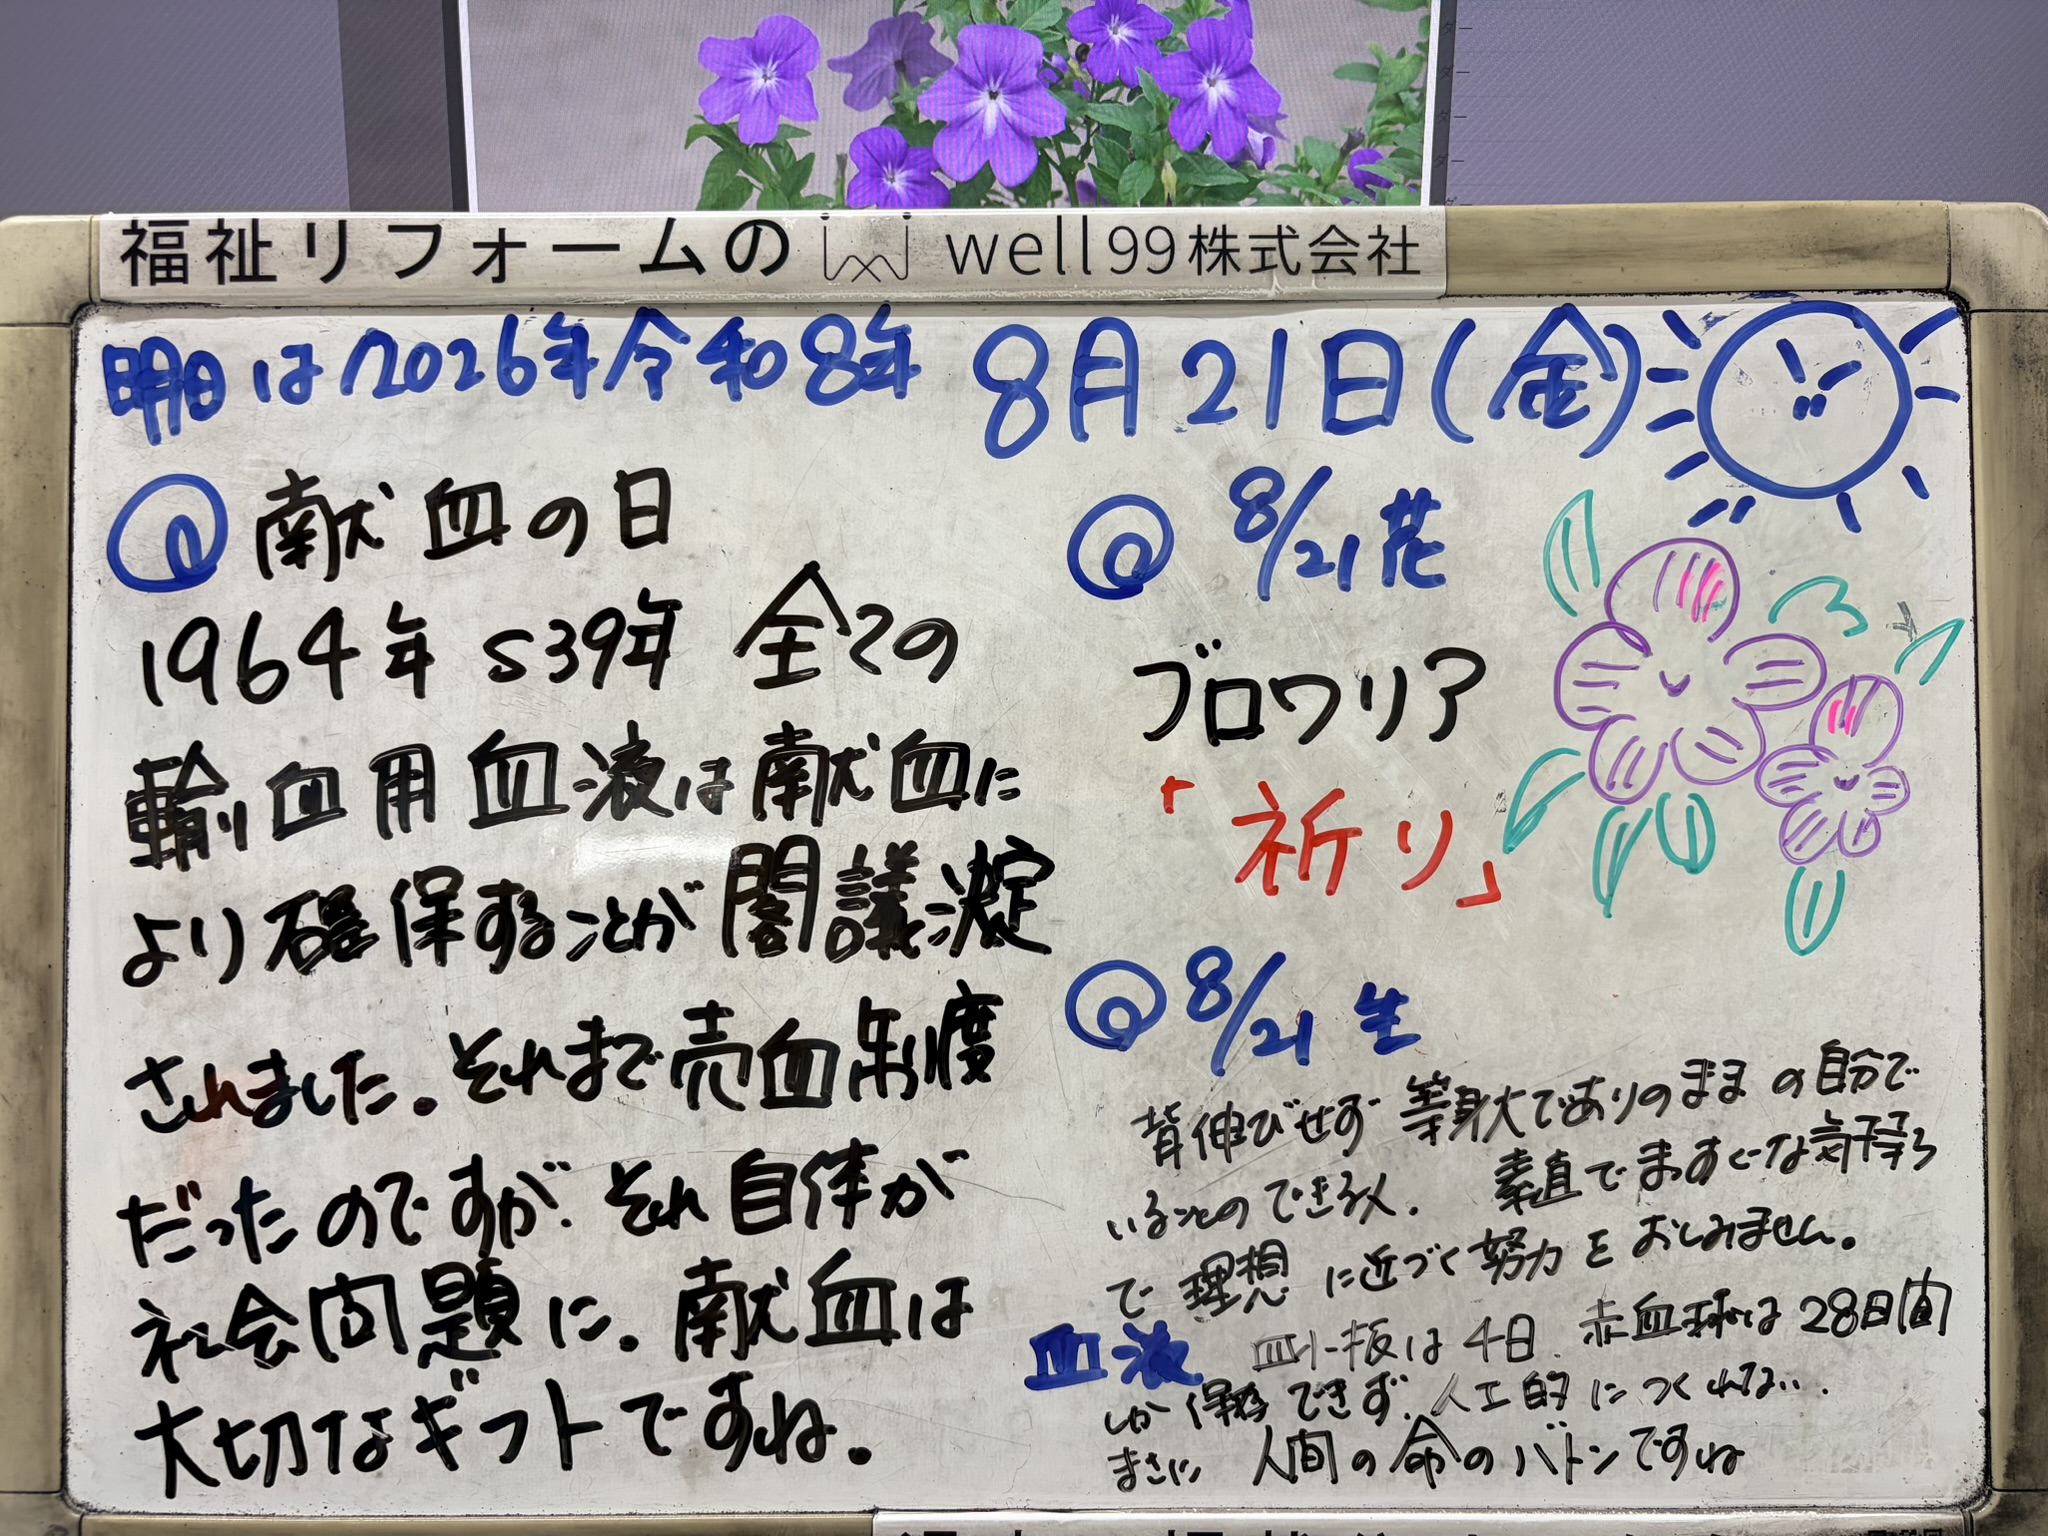 福祉リフォームの well99株式会社
明日は2026年令和8年 8月21日(金)
献血の日
1964年 S39年 全ての
輸血用血液は献血に
より確保することが閣議決定
されました。それまで売血制度
だったのですが、それ自体が
社会問題に。献血は
大切なギフトですね。
8/21花
ブロワリア
「祈り」
8/21生
背伸びせず等身大でありのままの自分で
いることのできる人。素直でまっすぐな気持ち
で理想に近づく努力をおしみません。
血液 血小板は4日、赤血球は28日間
しか保存できず、人工的につくれない。
まさに人間の命のバトンですね